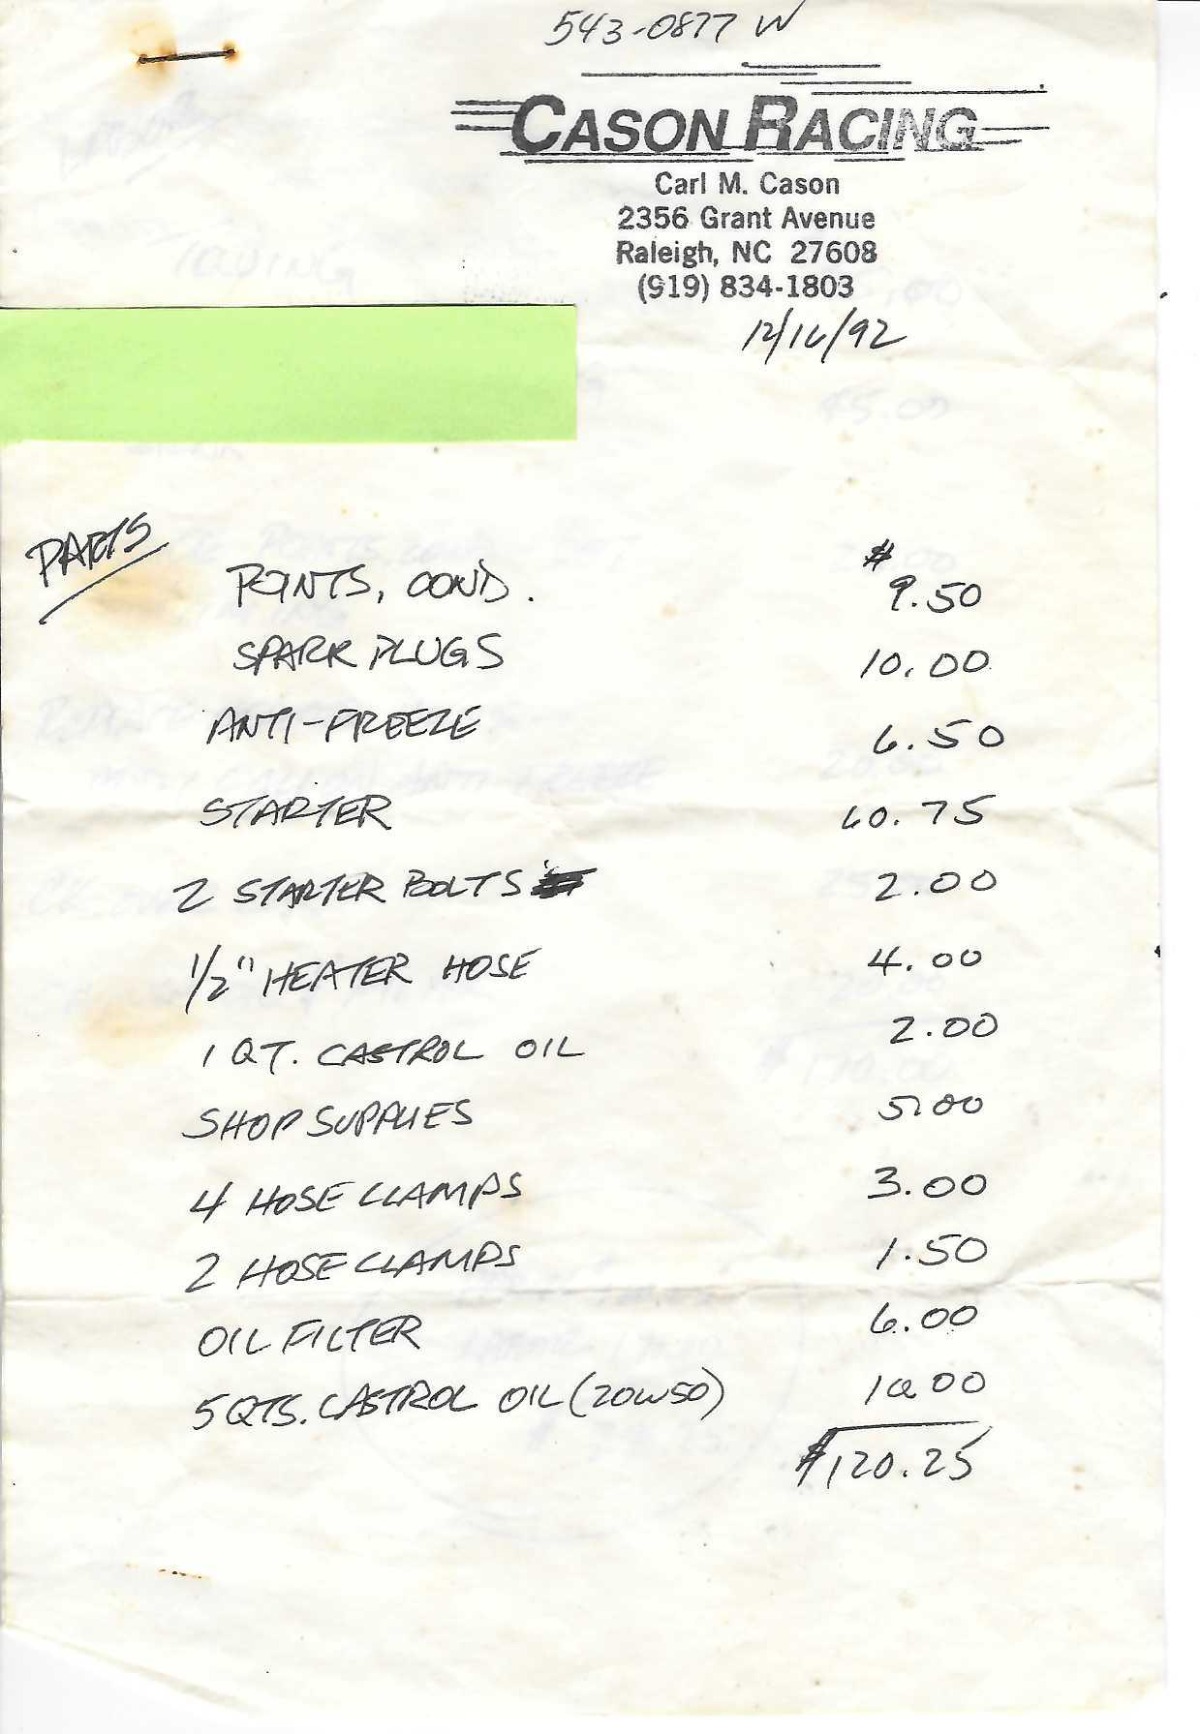 543-0877 W
CASON RACING
Carl M. Cason
2356 Grant Avenue
Raleigh, NC 27608
(919) 834-1803
12/16/92
PARTS
POINTS, COND. $ 9.50
SPARK PLUGS 10.00
ANTI-FREEZE 6.50
STARTER 60.75
2 STARTER BOLTS 2.00
1/2" HEATER HOSE 4.00
1 QT. CASTROL OIL 2.00
SHOP SUPPLIES 5.00
4 HOSE CLAMPS 3.00
2 HOSE CLAMPS 1.50
OIL FILTER 6.00
5 QTS. CASTROL OIL (20W50) 10.00
$120.25